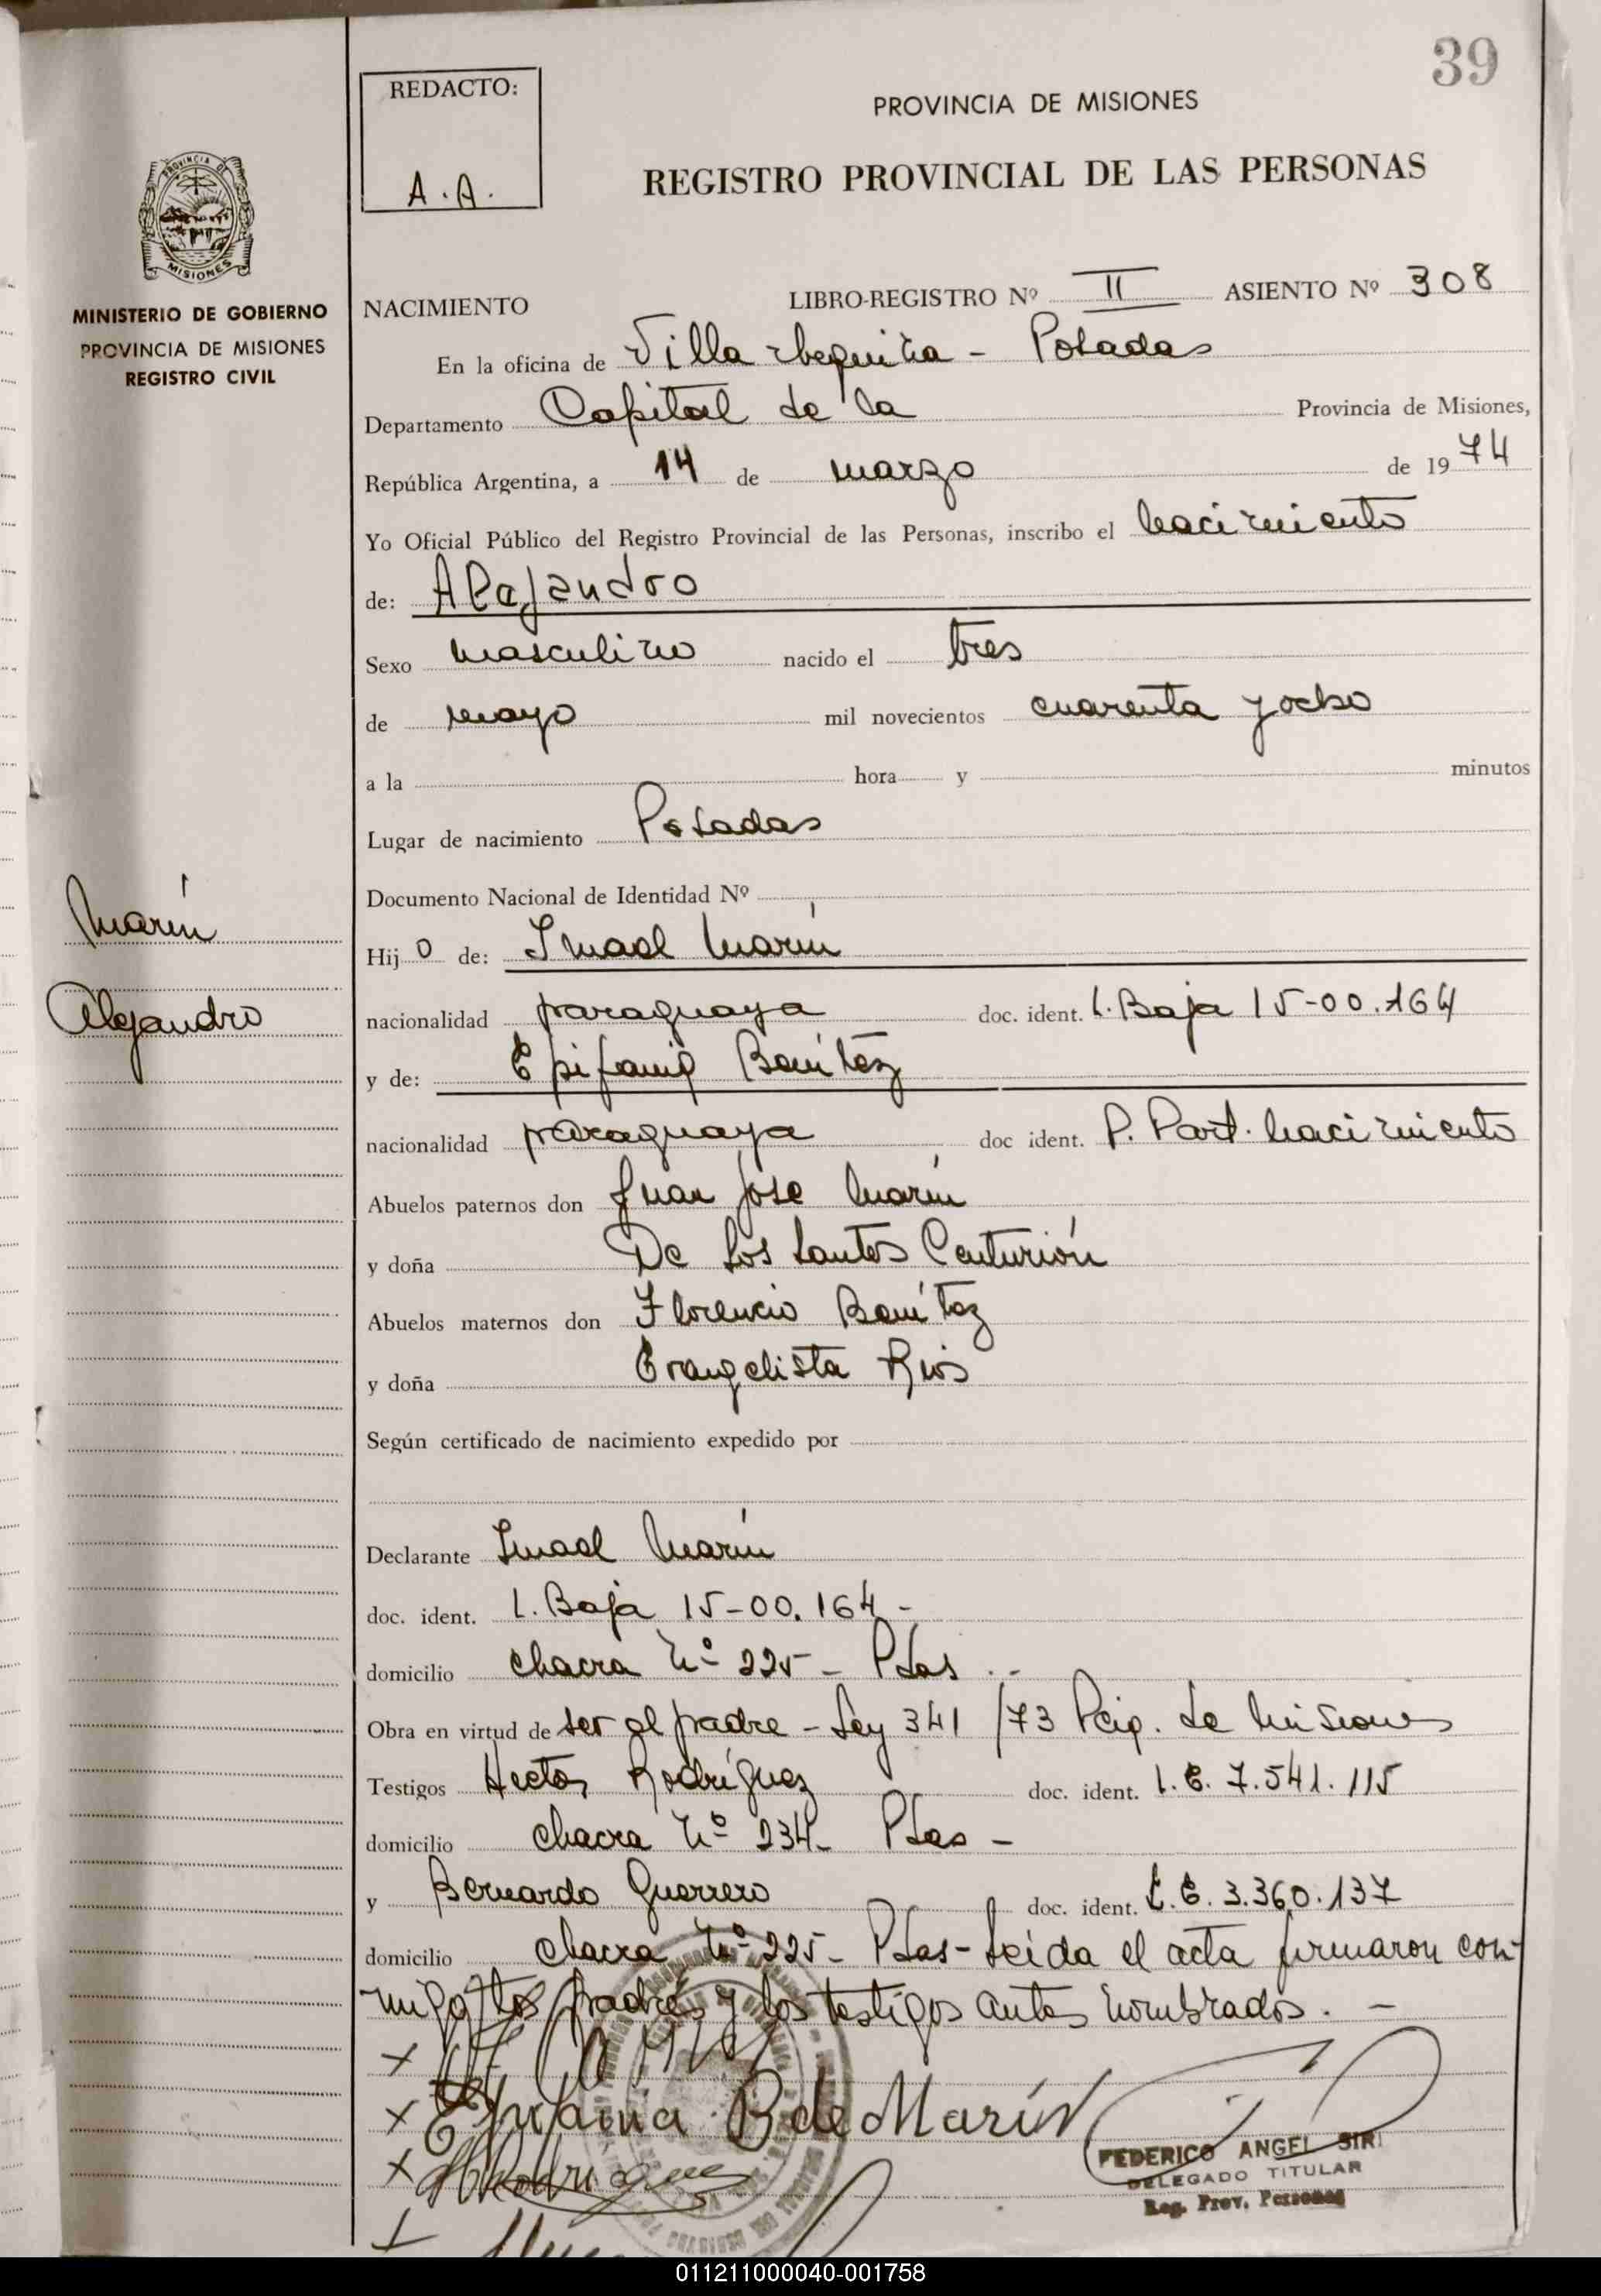 39
REDACTO:
A.A.
PROVINCIA DE MISIONES
REGISTRO PROVINCIAL DE LAS PERSONAS
PROVINCIA DE
MISIONES
MINISTERIO DE GOBIERNO
PROVINCIA DE MISIONES
REGISTRO CIVIL
NACIMIENTO LIBRO-REGISTRO Nº II ASIENTO Nº 308
En la oficina de Villa Urquiza - Posadas
Departamento Capital de la Provincia de Misiones,
República Argentina, a 14 de marzo de 1974
Yo Oficial Público del Registro Provincial de las Personas, inscribo el nacimiento
de: Alejandro
Sexo masculino nacido el tres
de mayo mil novecientos cuarenta y ocho
a la hora y minutos
Lugar de nacimiento Posadas
Documento Nacional de Identidad Nº
Marín
Alejandro
Hijo de: Imael Marín
nacionalidad paraguaya doc. ident. L. Baja 15-00.164
y de: Epifania Benítez
nacionalidad paraguaya doc ident. P. Part. nacimiento
Abuelos paternos don Juan José Marín
y doña De los Santos Centurión
Abuelos maternos don Florencio Benítez
y doña Evangelista Rios
Según certificado de nacimiento expedido por
Declarante Imael Marín
doc. ident. L. Baja 15-00.164-
domicilio chacra Nº 225- Pdas.-
Obra en virtud de ser el padre - Ley 341/73 Pcia. de Misiones
Testigos Hector Rodríguez doc. ident. L.E. 7.541.115
domicilio chacra Nº 234- Pdas-
y Bernardo Guerrero doc. ident. L.E. 3.360.137
domicilio chacra Nº 225- Pdas- Leida el acta firmaron con-
migo los padres y los testigos antes nombrados.-
x
x Epifania B de Marín
x HRodriguez
x
FEDERICO ANGEL SIRI
DELEGADO TITULAR
Reg. Prov. Personas
011211000040-001758